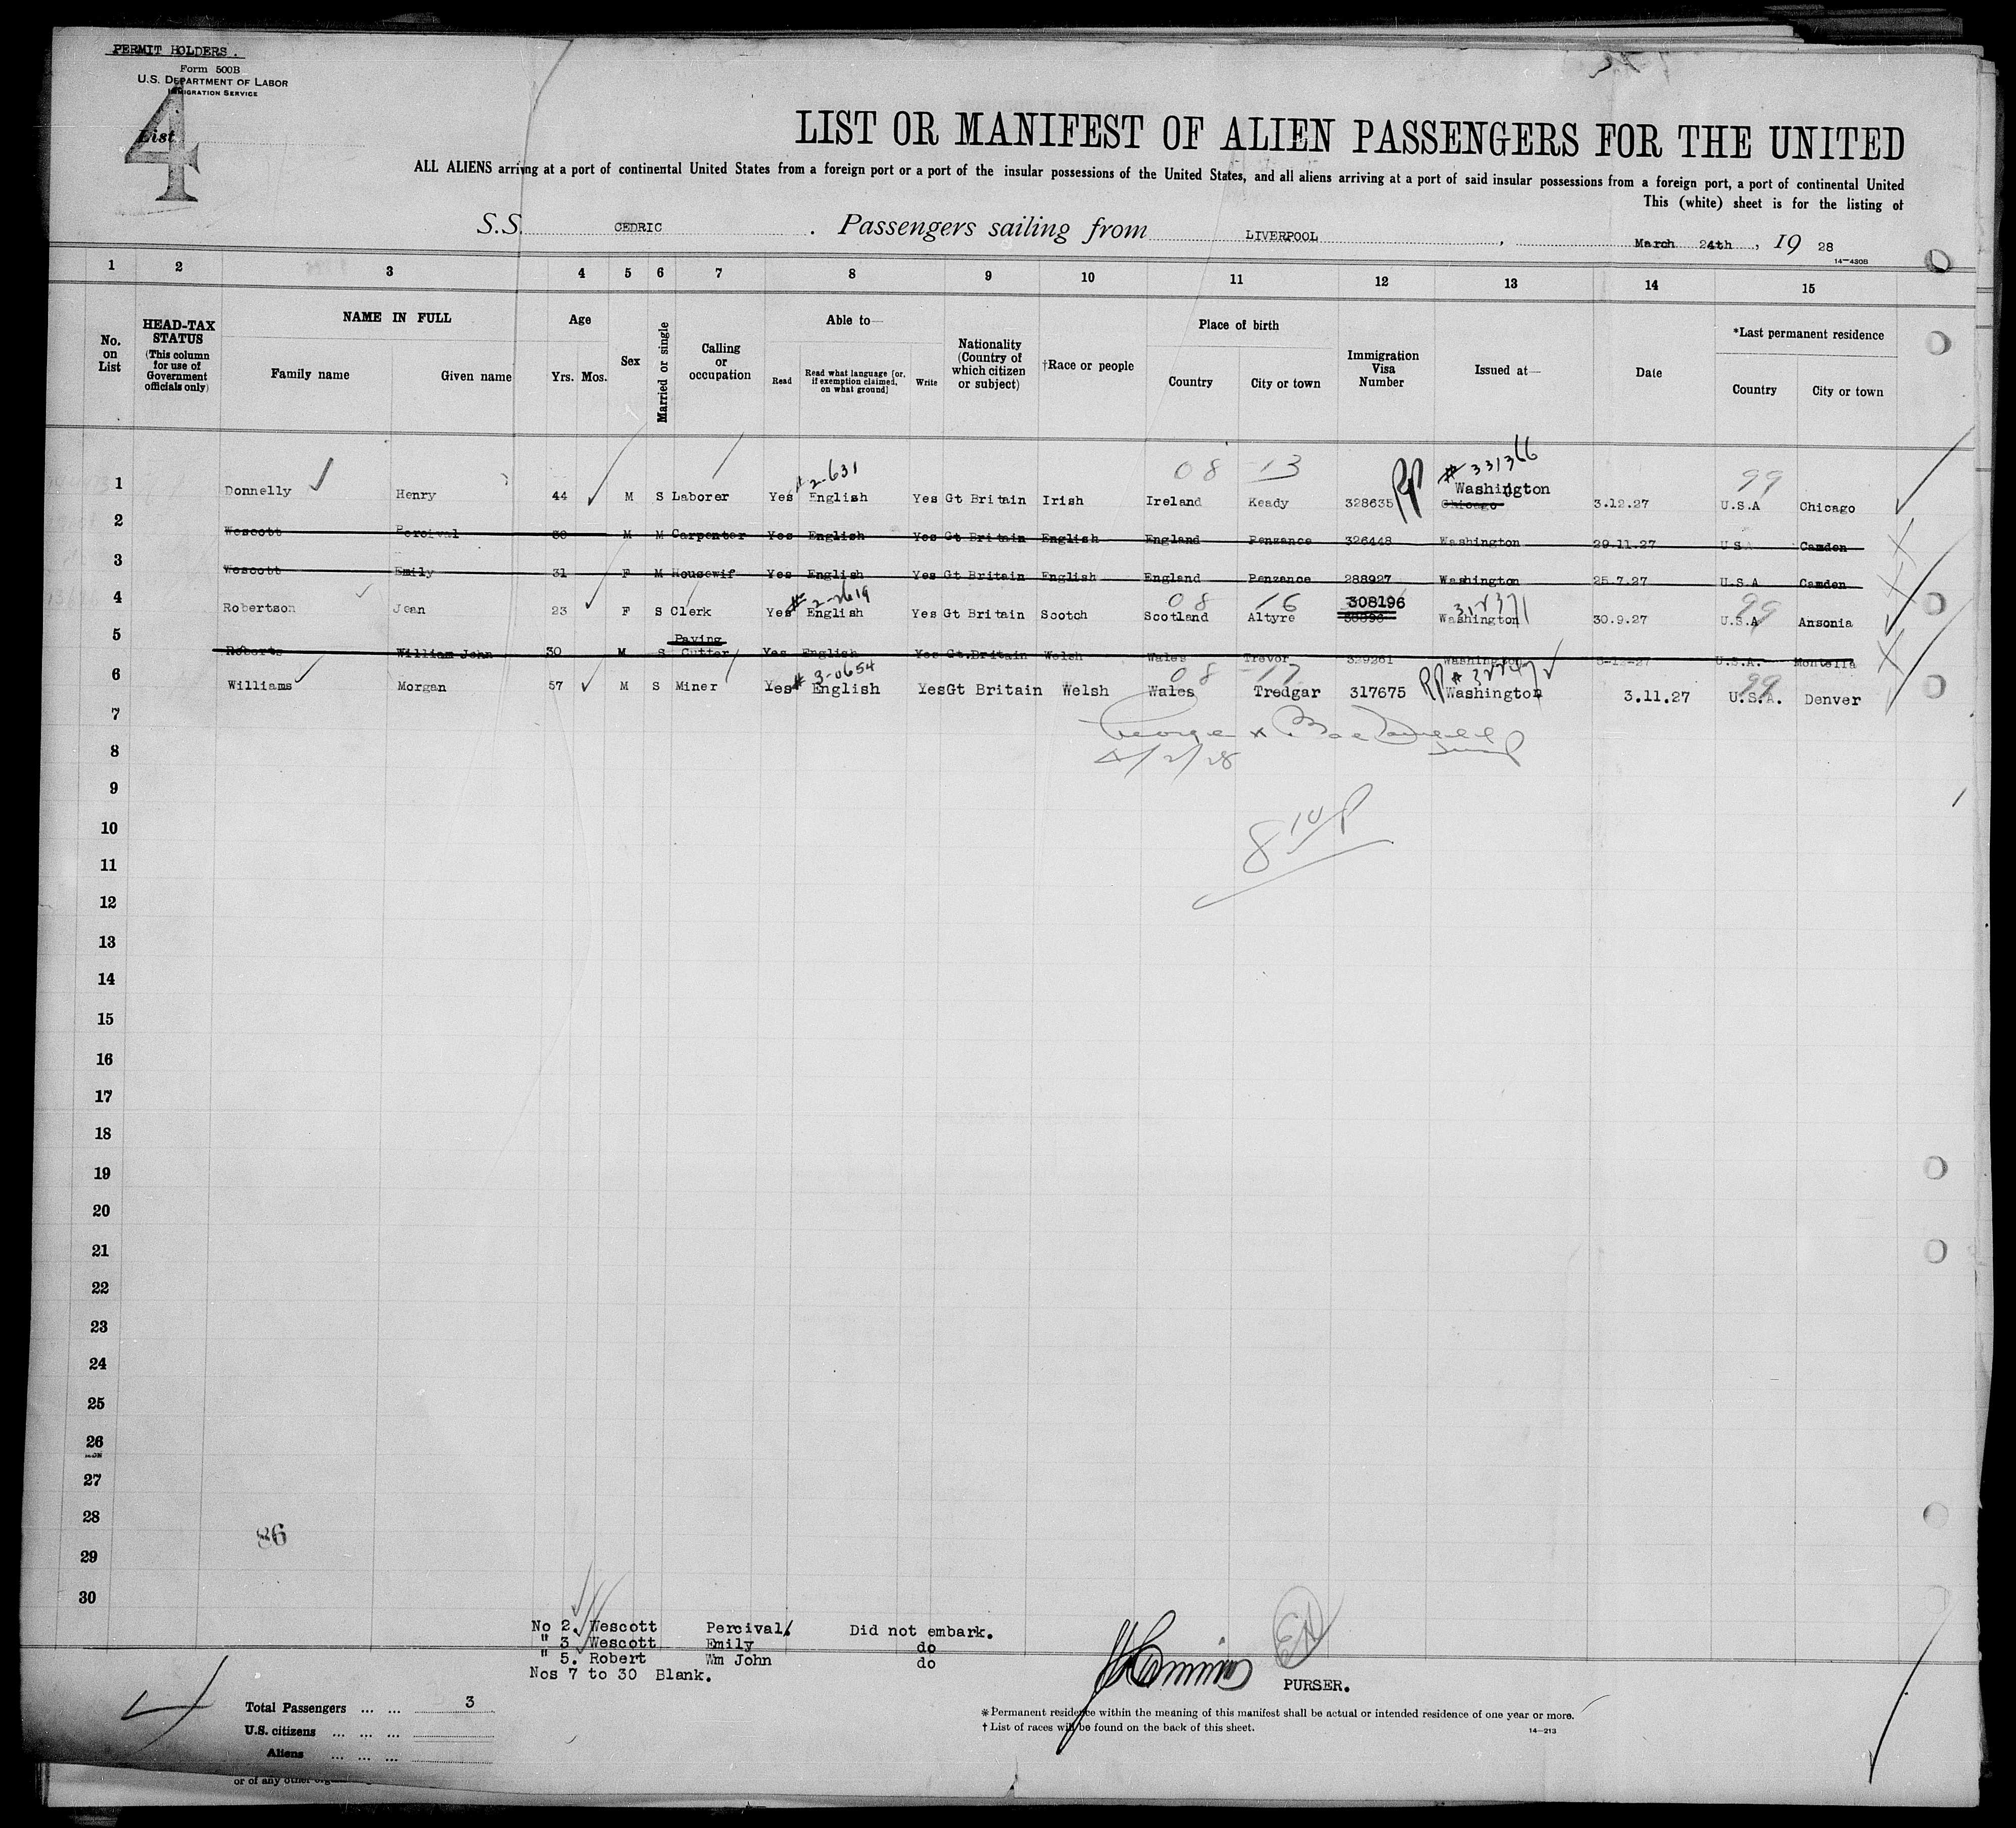 PERMIT HOLDERS.
Form 500B
U.S. DEPARTMENT OF LABOR
IMMIGRATION SERVICE
List 4
LIST OR MANIFEST OF ALIEN PASSENGERS FOR THE UNITED
ALL ALIENS arriving at a port of continental United States from a foreign port or a port of the insular possessions of the United States, and all aliens arriving at a port of said insular possessions from a foreign port, a port of continental United
This (white) sheet is for the listing of
S.S. CEDRIC . Passengers sailing from LIVERPOOL , March 24th , 19 28
14-430B
1 2 3 4 5 6 7 8 9 10 11 12 13 14 15
No. on List
HEAD-TAX STATUS (This column for use of Government officials only)
NAME IN FULL
Family name Given name
Age
Yrs. Mos.
Sex
Married or single
Calling or occupation
Able to—
Read
Read what language [or, if exemption claimed, on what ground]
Write
Nationality (Country of which citizen or subject)
†Race or people
Place of birth
Country City or town
Immigration Visa Number
Issued at—
Date
*Last permanent residence
Country City or town
2-631 08 13 #331366 99
1 Donnelly Henry 44 M S Laborer Yes English Yes Gt Britain Irish Ireland Keady 328635 Washington Chicago 3.12.27 U.S.A Chicago
2 Wescott Percival 30 M M Carpenter Yes English Yes Gt Britain English England Penzance 326448 Washington 29.11.27 U S A Camden
3 Wescott Emily 31 F M Housewif Yes English Yes Gt Britain English England Penzance 288927 Washington 25.7.27 U.S.A Camden
# 2-2619 08 16 308196 99
4 Robertson Jean 23 F S Clerk Yes English Yes Gt Britain Scotch Scotland Altyre Washington 30.9.27 U.S.A Ansonia
Paving
5 Roberts William John 30 M S Cutter Yes English Yes Gt.Britain Welsh Wales Trevor 329261 Washington U.S.A. Montella
# 3-0654 08 17 99
6 Williams Morgan 57 M S Miner Yes English Yes Gt Britain Welsh Wales Tredgar 317675 Washington 3.11.27 U.S.A. Denver
7
4/2/28
8
9
10
8 10 P
11
12
13
14
15
16
17
18
19
20
21
22
23
24
25
26
27
28
86
29
30
No 2. Wescott Percival Did not embark.
" 3 Wescott Emily do
" 5. Robert Wm John do
Nos 7 to 30 Blank.
PURSER.
Total Passengers ... ... 3
U.S. citizens ... ... ...
Aliens ... ... ...
* Permanent residence within the meaning of this manifest shall be actual or intended residence of one year or more.
† List of races will be found on the back of this sheet.
14-213
or of any other